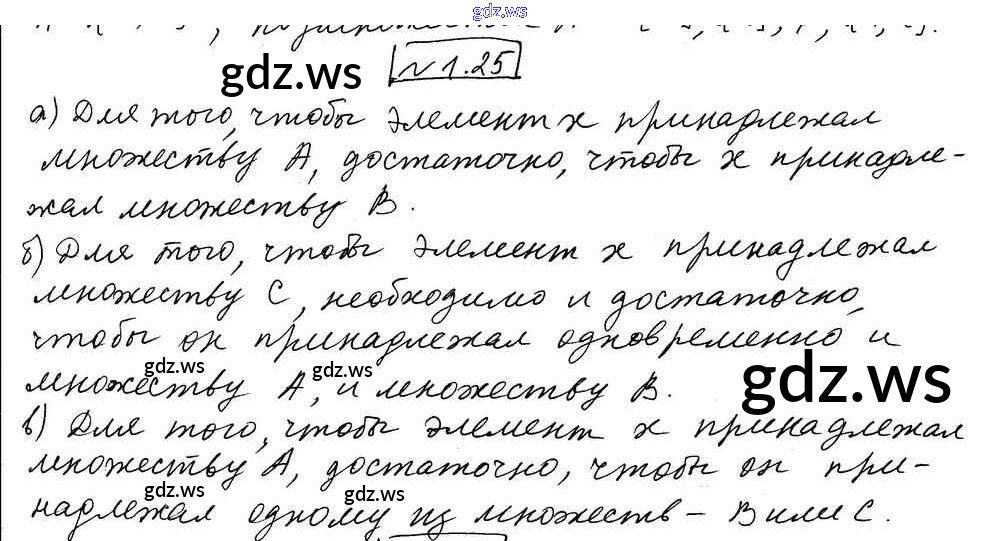 gdz.ws
№1.25
gdz.ws
а) Для того, чтобы элемент x принадлежал
множеству A, достаточно, чтобы x принадле-
жал множеству B.
б) Для того, чтобы элемент x принадлежал
множеству C, необходимо и достаточно,
чтобы он принадлежал одновременно и
множеству A, и множеству B.
gdz.ws
gdz.ws
gdz.ws
в) Для того, чтобы элемент x принадлежал
множеству A, достаточно, чтобы он при-
gdz.ws
gdz.ws
надлежал одному из множеств - B или C.